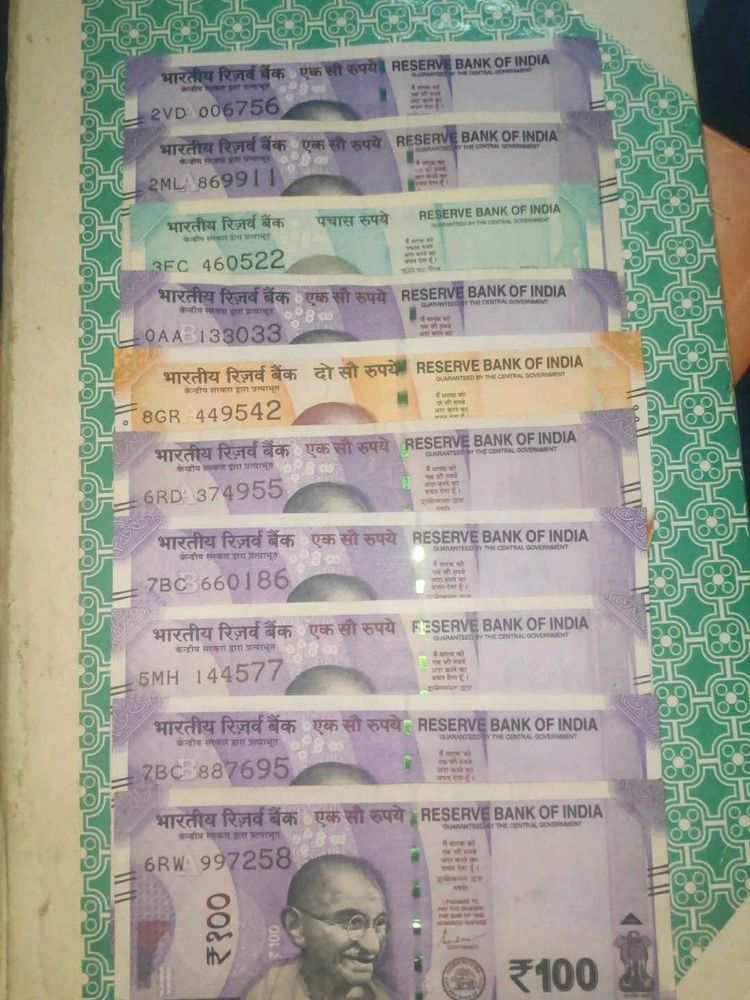 भारतीय रिज़र्व बैंक एक सौ रुपये RESERVE BANK OF INDIA
केन्द्रीय सरकार द्वारा प्रत्याभूत GUARANTEED BY THE CENTRAL GOVERNMENT
2VD 006756
भारतीय रिज़र्व बैंक एक सौ रुपये RESERVE BANK OF INDIA
केन्द्रीय सरकार द्वारा प्रत्याभूत GUARANTEED BY THE CENTRAL GOVERNMENT
2ML 869911
भारतीय रिज़र्व बैंक पचास रुपये RESERVE BANK OF INDIA
केन्द्रीय सरकार द्वारा प्रत्याभूत GUARANTEED BY THE CENTRAL GOVERNMENT
460522
भारतीय रिज़र्व बैंक एक सौ रुपये RESERVE BANK OF INDIA
केन्द्रीय सरकार द्वारा प्रत्याभूत GUARANTEED BY THE CENTRAL GOVERNMENT
0AA 133033
भारतीय रिज़र्व बैंक दो सौ रुपये RESERVE BANK OF INDIA
केन्द्रीय सरकार द्वारा प्रत्याभूत GUARANTEED BY THE CENTRAL GOVERNMENT
8GR 449542
भारतीय रिज़र्व बैंक एक सौ रुपये RESERVE BANK OF INDIA
केन्द्रीय सरकार द्वारा प्रत्याभूत GUARANTEED BY THE CENTRAL GOVERNMENT
6RD 374955
भारतीय रिज़र्व बैंक एक सौ रुपये RESERVE BANK OF INDIA
केन्द्रीय सरकार द्वारा प्रत्याभूत GUARANTEED BY THE CENTRAL GOVERNMENT
7BC 660186
भारतीय रिज़र्व बैंक एक सौ रुपये RESERVE BANK OF INDIA
केन्द्रीय सरकार द्वारा प्रत्याभूत GUARANTEED BY THE CENTRAL GOVERNMENT
5MH 144577
भारतीय रिज़र्व बैंक एक सौ रुपये RESERVE BANK OF INDIA
केन्द्रीय सरकार द्वारा प्रत्याभूत GUARANTEED BY THE CENTRAL GOVERNMENT
7BC 887695
भारतीय रिज़र्व बैंक एक सौ रुपये RESERVE BANK OF INDIA
केन्द्रीय सरकार द्वारा प्रत्याभूत GUARANTEED BY THE CENTRAL GOVERNMENT
6RW 997258
मैं धारक को
एक सौ रुपये
अदा करने का
वचन देता हूँ।
I PROMISE TO
PAY THE BEARER
THE SUM OF ONE
HUNDRED RUPEES
GOVERNOR
₹१००
₹100
₹100